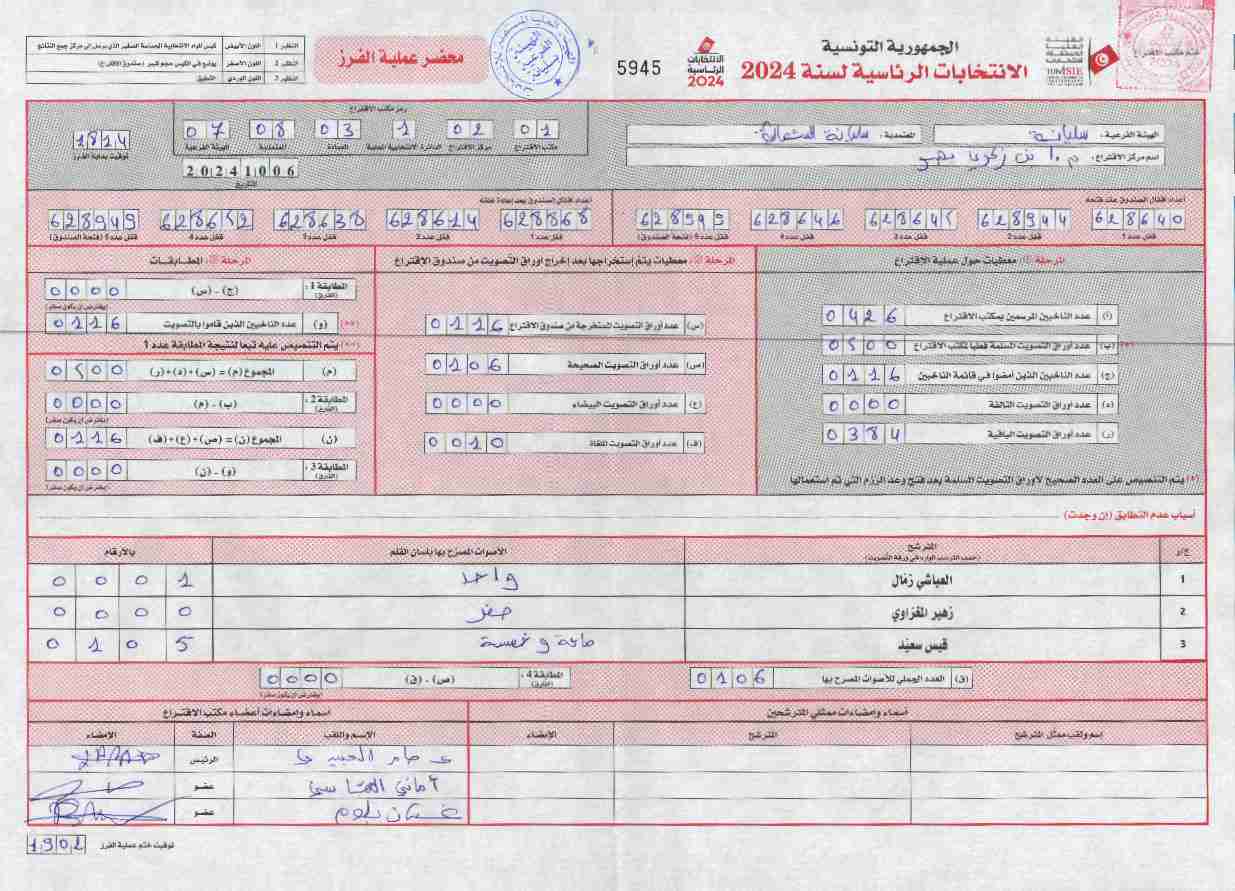 الجمهورية التونسية
الانتخابات الرئاسية لسنة 2024
الهيئة العليا المستقلة للانتخابات
TUNISIE
ختم مكتب الاقتراع
الانتخابات الرئاسية 2024
5945
محضر عملية الفرز
النظير 1 اللون الأبيض كيس المواد الانتخابية الحساسة الصغير الذي يرسل إلى مركز جمع النتائج
النظير 2 اللون الأصفر يوضع في الكيس حجم كبير (صندوق الاقتراع)
النظير 3 اللون الوردي التعليق
الهيئة الفرعية: سليانة
المعتمدية: سليانة الشمالية
اسم مركز الاقتراع:
رمز مكتب الاقتراع
01 02 1 03 08 07
مكتب الاقتراع مركز الاقتراع الدائرة الانتخابية المحلية العمادة المعتمدية الهيئة الفرعية
20241006
التاريخ
1814
توقيت بداية الفرز
أعداد أقفال الصندوق عند فتحه
628640 628944 628645 628646 628595
قفل عدد 1 قفل عدد 2 قفل عدد 3 قفل عدد 4 قفل عدد 5 (فتحة الصندوق)
أعداد أقفال الصندوق بعد إعادة غلقه
628868 628614 628638 628652 628949
قفل عدد 1 قفل عدد 2 قفل عدد 3 قفل عدد 4 قفل عدد 5 (فتحة الصندوق)
المرحلة 1: معطيات حول عملية الاقتراع
(أ) عدد الناخبين المرسمين بمكتب الاقتراع 0426
(*) (ب) عدد أوراق التصويت المسلمة فعليا لمكتب الاقتراع 0500
(ج) عدد الناخبين الذين أمضوا في قائمة الناخبين 0116
(د) عدد أوراق التصويت التالفة 0000
(ر) عدد أوراق التصويت الباقية 0384
(*) يتم التنصيص على العدد الصحيح لأوراق التصويت المسلمة بعد فتح وعد الرزم التي تم استعمالها
المرحلة 2: معطيات يتم إستخراجها بعد إخراج أوراق التصويت من صندوق الاقتراع
(س) عدد أوراق التصويت المستخرجة من صندوق الاقتراع 0116
(ص) عدد أوراق التصويت الصحيحة 0106
(ع) عدد أوراق التصويت البيضاء 0000
(ف) عدد أوراق التصويت الملغاة 0010
المرحلة 3: المطابقات
المطابقة 1: (الفارق) (ج) - (س) 0000
(يفترض أن يكون صفر)
(**) (و) عدد الناخبين الذين قاموا بالتصويت 0116
(**) يتم التنصيص عليه تبعا لنتيجة المطابقة عدد 1
(م) المجموع (م) = (س)+(د)+(ر) 0500
المطابقة 2: (الفارق) (ب) - (م) 0000
(يفترض أن يكون صفر)
(ن) المجموع (ن) = (ص)+(ع)+(ف) 0116
المطابقة 3: (الفارق) (و) - (ن) 0000
(يفترض أن يكون صفر)
أسباب عدم التطابق (إن وجدت)
ع/ر المترشح الأصوات المصرح بها بلسان القلم بالأرقام
(حسب الترتيب الوارد في ورقة التصويت)
1 العياشي زمّال واحد 0001
2 زهير المغزاوي صفر 0000
3 قيس سعيّد مائة وخمسة 0105
(ق) العدد الجملي للأصوات المصرح بها 0106
المطابقة 4: (الفارق) (ص) - (ق) 0000
(يفترض أن يكون صفر)
أسماء وإمضاءات ممثلي المترشحين
اسم ولقب ممثل المترشح المترشح الإمضاء
أسماء وإمضاءات أعضاء مكتب الاقتراع
الاسم واللقب الصفة الإمضاء
الرئيس
عضو
عضو
توقيت ختم عملية الفرز 1902